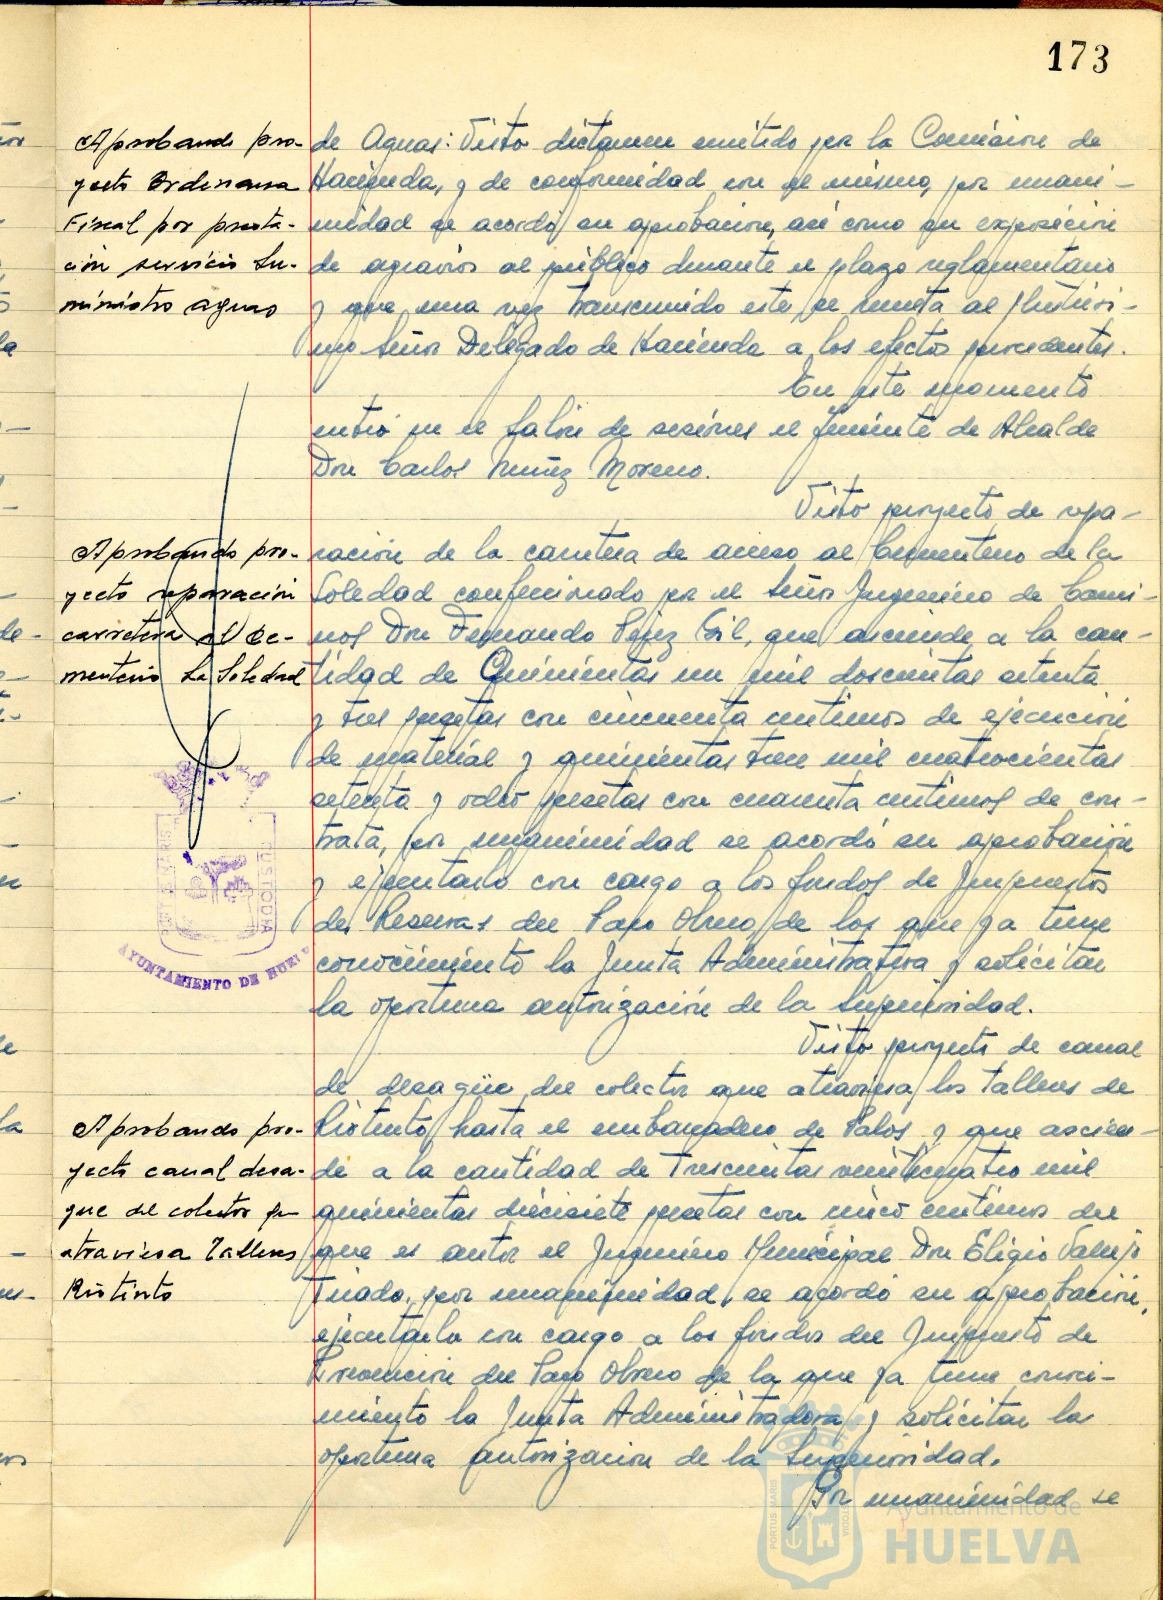 173
Aprobando pro-
yecto Ordenanza
Fiscal por presta-
ción servicio Su-
ministro aguas
de Aguas: Visto dictamen emitido por la Comisión de
Hacienda, y de conformidad con el mismo, por unani-
midad se acordó su aprobación, así como su exposición
de agravios al público durante el plazo reglamentario
y que una vez transcurrido este, se remita al Iltrisi-
mo Señor Delegado de Hacienda a los efectos procedentes.
En este momento
entró en el Salón de sesiones el Teniente de Alcalde
Don Carlos Nuñez Moreno.
Visto proyecto de repa-
Aprobando pro-
yecto reparación
carretera al Ce-
menterio La Soledad
ración de la carretera de acceso al Cementerio de la
Soledad confeccionado por el Señor Ingeniero de Cami-
nos Don Fernando Pérez Gil, que asciende a la can-
tidad de Quinientas un mil doscientas setenta
y tres pesetas con cincuenta centimos de ejecución
de material y quinientas trece mil cuatrocientas
setenta y ocho pesetas con cuarenta centimos de con-
trata, por unanimidad se acordó su aprobación
y ejecutarlo con cargo a los fondos de Impuestos
de Reservas del Paro Obrero, de los que ya tiene
conocimiento la Junta Administrativa y solicitar
la oportuna autorización de la Superioridad.
Visto proyecto de canal
de desagüe del colector que atraviesa los talleres de
Aprobando pro-
yecto canal desa-
gue del colector que
atraviesa Talleres
Riotinto
Riotinto hasta el embarcadero de Palos y que ascien-
de a la cantidad de Trescientas veinticuatro mil
quinientas diecisiete pesetas con cinco centimos del
que es autor el Ingeniero Municipal Don Eligio Vallejo
Triado, por unanimidad, se acordó su aprobación,
ejecutarla con cargo a los fondos del Impuesto de
Prevención del Paro Obrero de la que ya tiene conoci-
miento la Junta Administradora y solicitar la
oportuna autorización de la Superioridad.
Por unanimidad se
PORTUS MARIS CUSTODIA
AYUNTAMIENTO DE HUEL
PORTUS MARIS
CUSTODIA
Ayuntamiento de
HUELVA